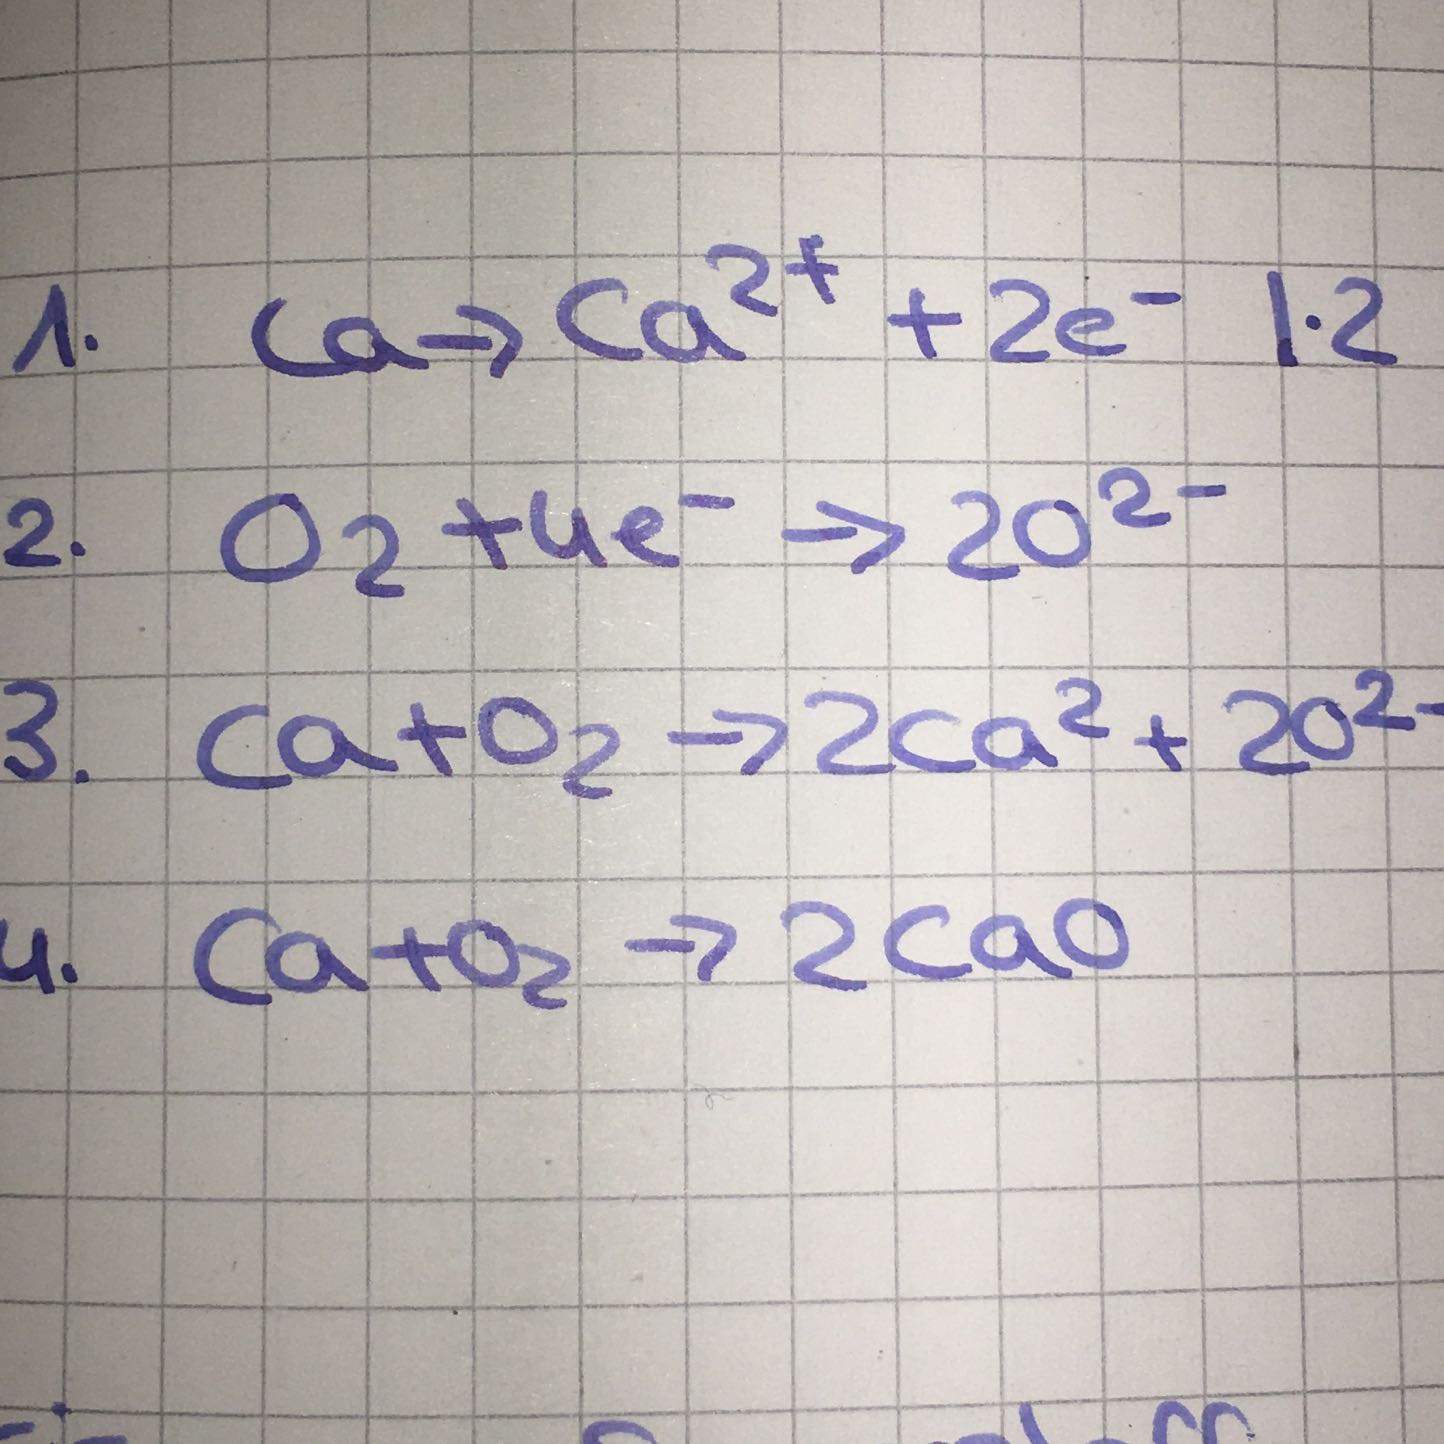 1. Ca → Ca²⁺ + 2e⁻ |·2
2. O₂ + 4e⁻ → 2O²⁻
3. Ca + O₂ → 2Ca² + 2O²⁻
4. Ca + O₂ → 2CaO